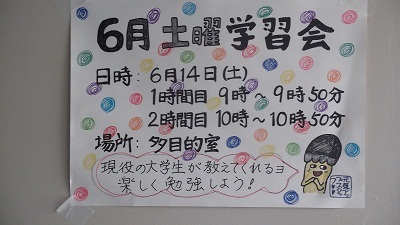 6月土曜学習会
日時：6月14日(土)
1時間目 9時～9時50分
2時間目 10時～10時50分
場所：多目的室
現役の大学生が教えてくれるヨ
楽しく勉強しよう！